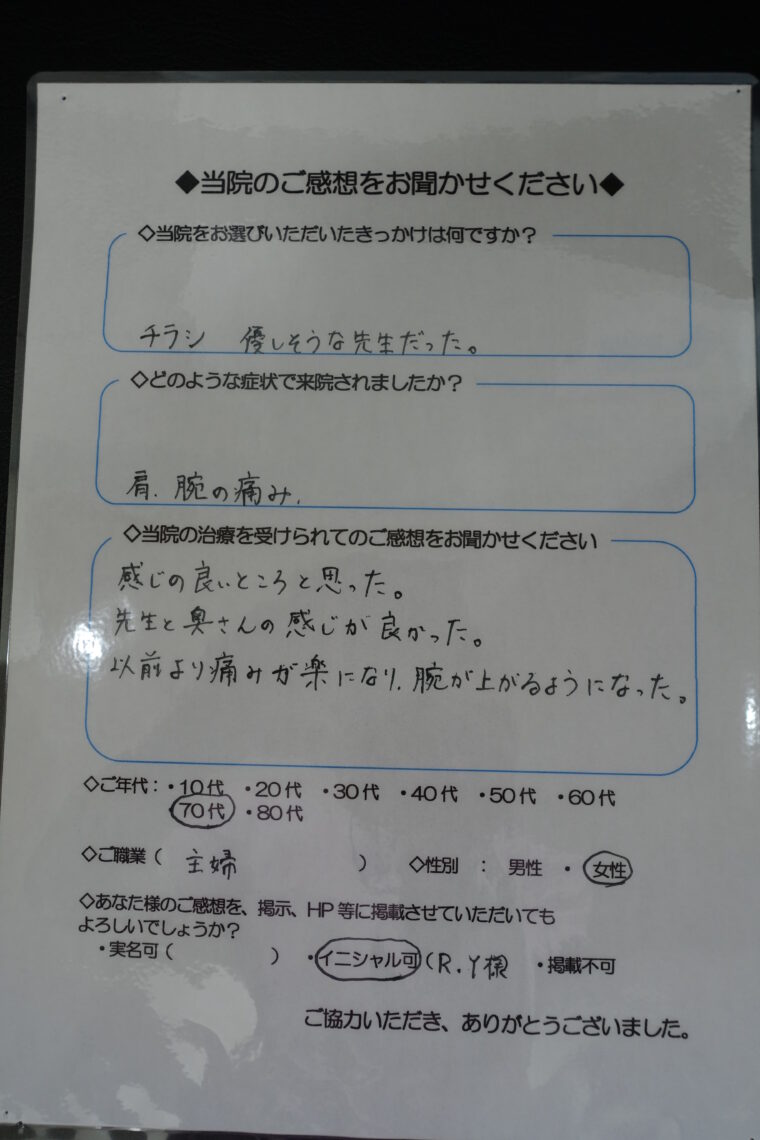 ◆当院のご感想をお聞かせください◆
◇当院をお選びいただいたきっかけは何ですか？
チラシ 優しそうな先生だった。
◇どのような症状で来院されましたか？
肩.腕の痛み.
◇当院の治療を受けられてのご感想をお聞かせください
感じの良いところと思った。
先生と奥さんの感じが良かった。
以前より痛みが楽になり.腕が上がるようになった。
◇ご年代：・10代 ・20代 ・30代 ・40代 ・50代 ・60代
・70代 ・80代
◇ご職業（ 主婦 ） ◇性別 ： 男性 ・ 女性
◇あなた様のご感想を、掲示、HP等に掲載させていただいても
よろしいでしょうか？
・実名可（ ） ・イニシャル可（R.Y様 ・掲載不可
ご協力いただき、ありがとうございました。